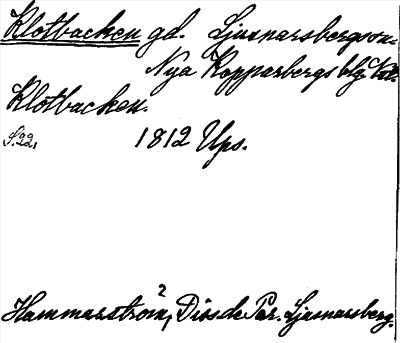 Klotbacken gd. Ljusnarsbergs sn.
Nya Kopparbergs blg Vstm.
Klotbacken.
S. 22. 1812 Ups.
Hammarström, Diss de Par. Ljusnarsberg.